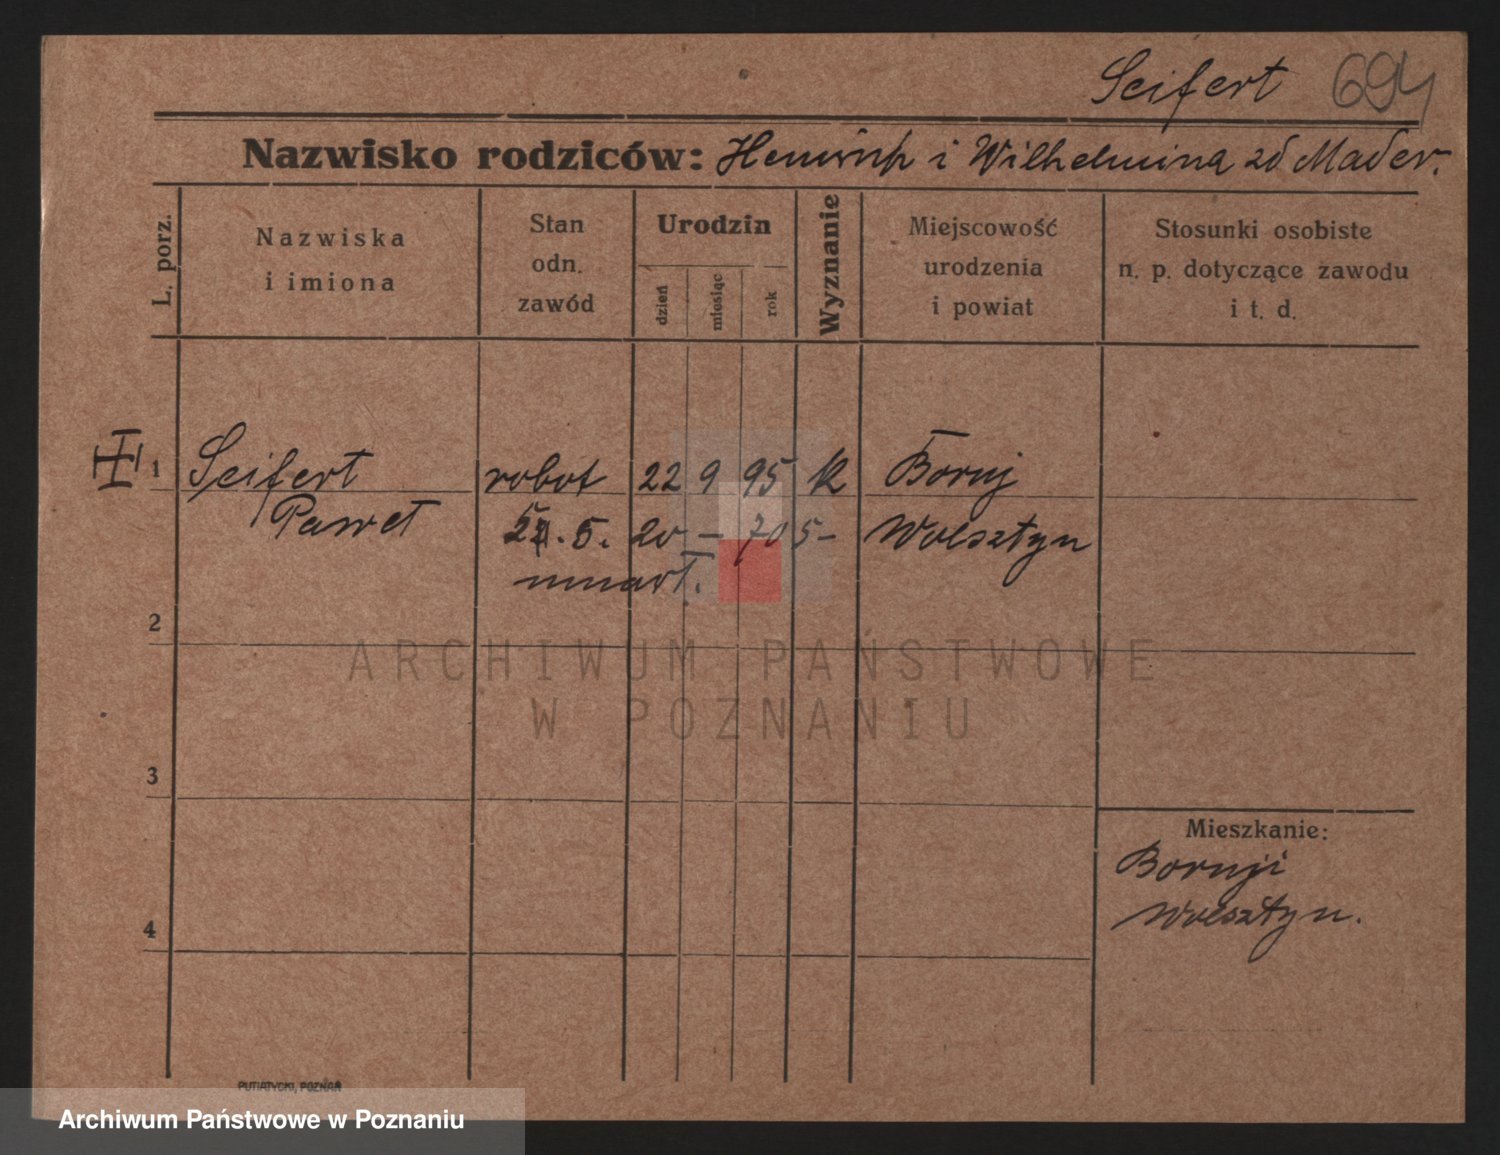 Seifert 694
Nazwisko rodziców: Heinrich i Wilhelmina zd Mader.
L. porz.
Nazwiska
i imiona
Stan
odn.
zawód
Urodzin
dzień
miesiąc
rok
Wyznanie
Miejscowość
urodzenia
i powiat
Stosunki osobiste
n. p. dotyczące zawodu
i t. d.
1 Seifert robot 22 9 95 k Boruj
Paweł 5. 20 – 705– Wolsztyn
umarł.
2
3
4
Mieszkanie:
Boruji
Wolsztyn.
ARCHIWUM PAŃSTWOWE
W POZNANIU
PUTIATYCKI, POZNAŃ
Archiwum Państwowe w Poznaniu